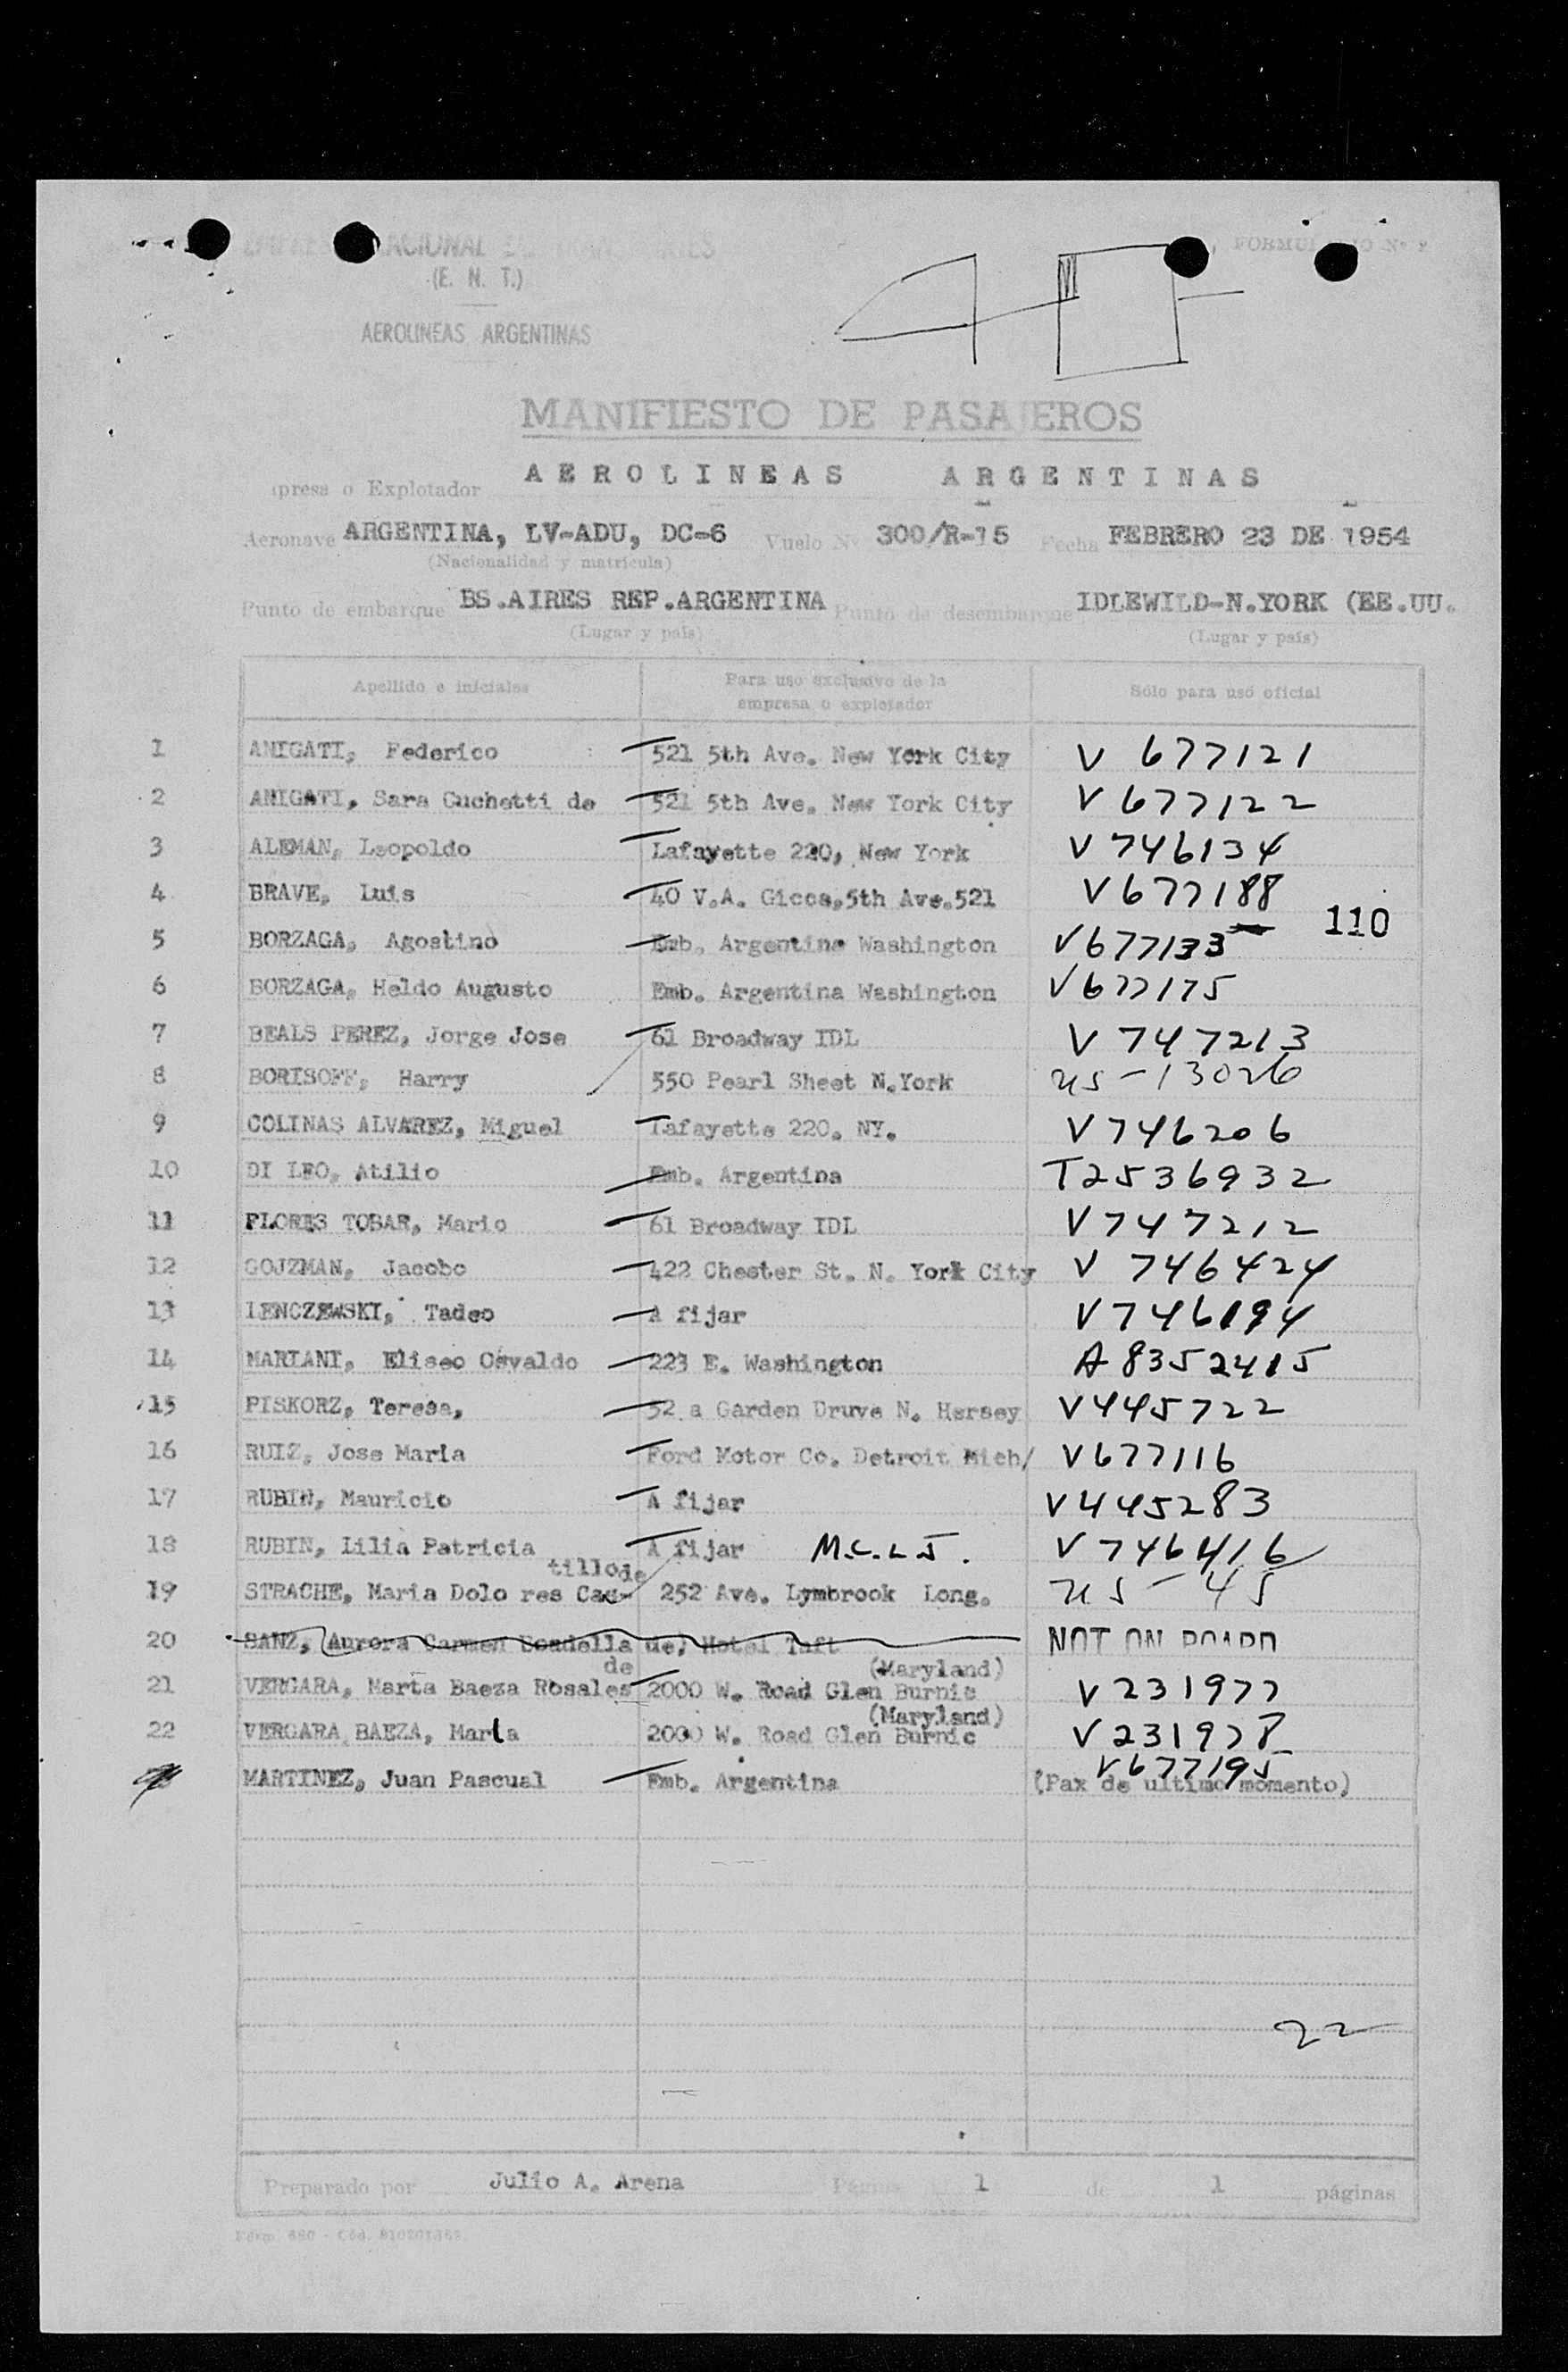 NACIONAL
(E. N. T.)
AEROLINEAS ARGENTINAS
MANIFIESTO DE PASAJEROS
presa o Explotador AEROLINEAS ARGENTINAS
Aeronave ARGENTINA, LV-ADU, DC-6 Vuelo Nº 300/R-15 Fecha FEBRERO 23 DE 1954
(Nacionalidad y matrícula)
Punto de embarque BS.AIRES REP.ARGENTINA Punto de desembarque IDLEWILD-N.YORK (EE.UU.
(Lugar y país) (Lugar y país)
Apellido e iniciales Para uso exclusivo de la empresa o explotador Sólo para uso oficial
1 AMIGATI, Federico 521 5th Ave. New York City V 677121
2 AMIGATI, Sara Cuchetti de 521 5th Ave. New York City V 677122
3 ALEMAN, Leopoldo Lafayette 220, New York V 746134
4 BRAVE, Luis 40 V.A. Gicca,5th Ave.521 V 677188
110
5 BORZAGA, Agostino Emb. Argentina Washington V 677133
6 BORZAGA, Heldo Augusto Emb. Argentina Washington V 677175
7 BEALS PEREZ, Jorge Jose 61 Broadway IDL V 747213
8 BORISOFF, Harry 550 Pearl Sheet N.York US-13026
9 COLINAS ALVAREZ, Miguel Lafayette 220. NY. V 746206
10 DI LEO, Atilio Emb. Argentina T2536932
11 FLORES TOBAR, Mario 61 Broadway IDL V 747212
12 GOJZMAN, Jacobo 422 Chester St. N. York City V 746424
13 LENCZEWSKI, Tadeo A fijar V 746194
14 MARIANI, Eliseo Osvaldo 223 E. Washington A 8352415
15 PISKORZ, Teresa, 52 a Garden Druve N. Hersey V 445722
16 RUIZ, Jose Maria Ford Motor Co. Detroit Mich/ V 677116
17 RUBIN, Mauricio A fijar V 445283
18 RUBIN, Lilia Patricia A fijar M.C.L.J. V 746416
tillo de
19 STRACHE, Maria Dolo res Cas- 252 Ave. Lymbrook Long. US-45
20 SANZ, Aurora Carmen Boadella de, Hotel Taft NOT ON BOARD
de (Maryland)
21 VERGARA, Marta Baeza Rosales 2000 W. Road Glen Burnie V 231977
(Maryland)
22 VERGARA BAEZA, Marta 2000 W. Road Glen Burnic V 231978
V 677195
MARTINEZ, Juan Pascual Emb. Argentina (Pax de ultimo momento)
22
Preparado por Julio A. Arena Página 1 de 1 páginas